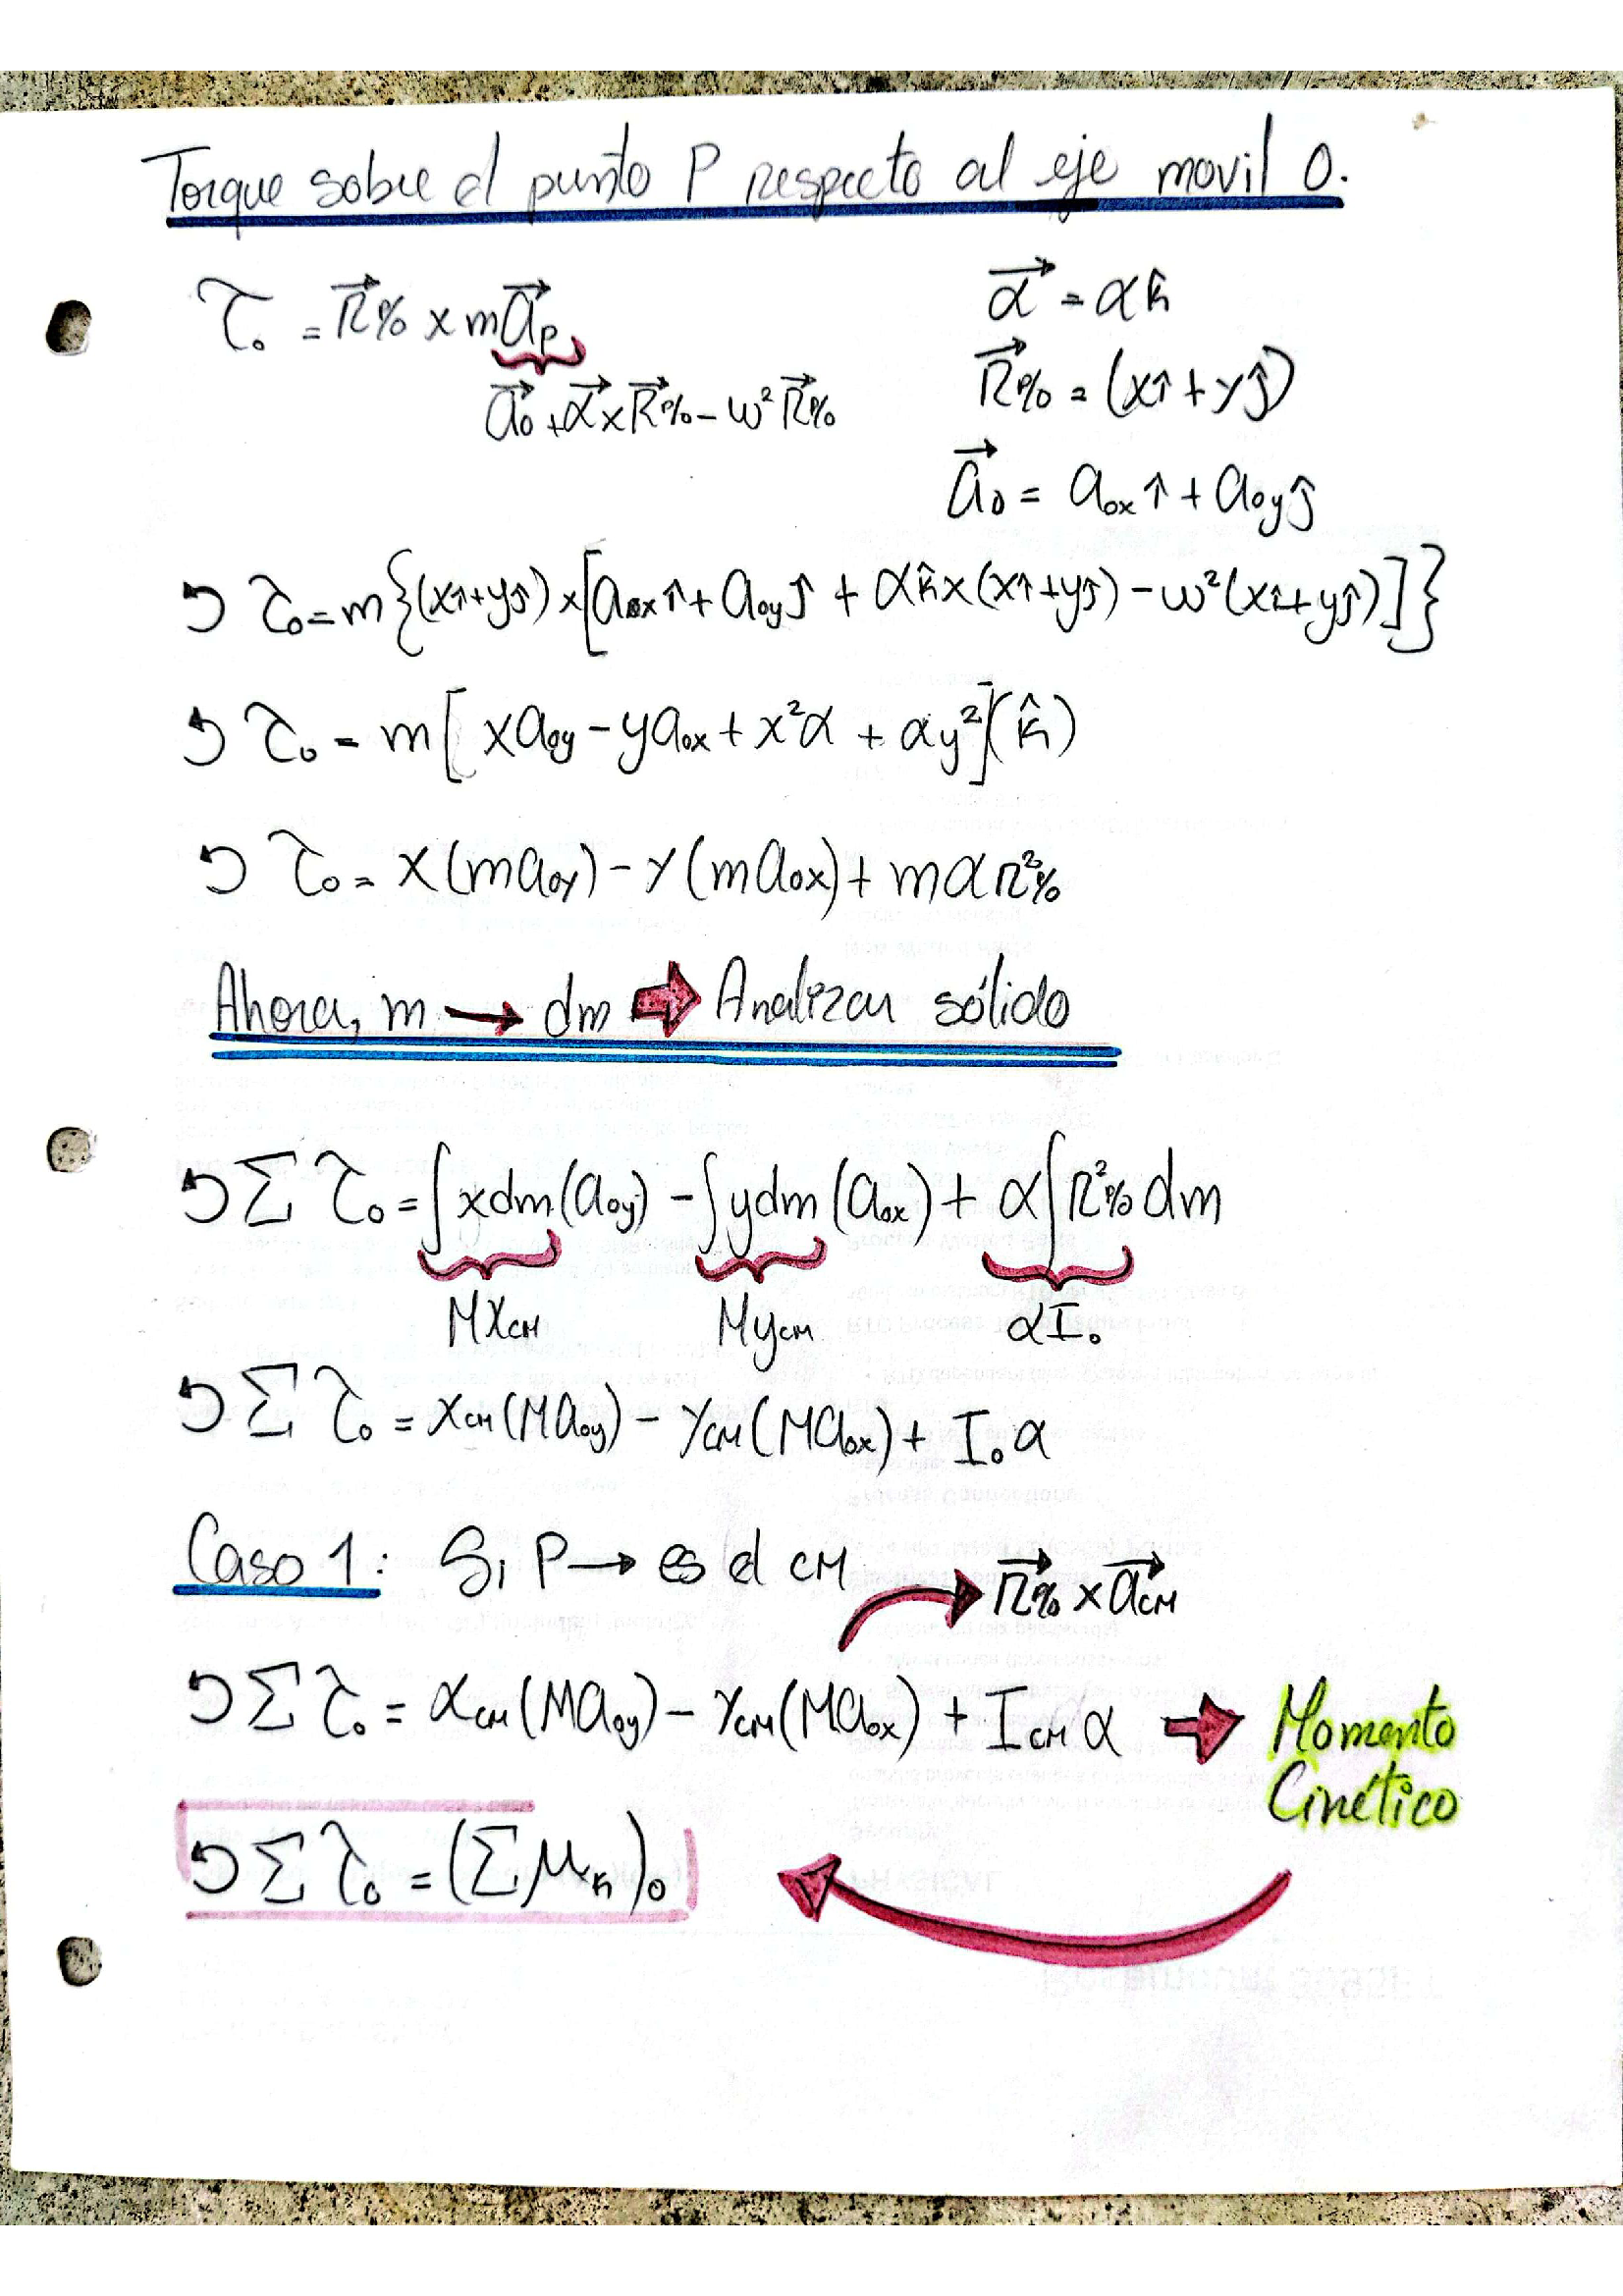 Torque sobre el punto P respecto al eje movil O.
τ₀ = R⃗P/O × m a⃗P
a⃗₀ + α⃗ × R⃗P/O − ω² R⃗P/O
α⃗ = α k̂
R⃗P/O = (x î + y ĵ)
a⃗₀ = a₀ₓ î + a₀y ĵ
↺ τ₀ = m{(x î + y ĵ) × [a₀ₓ î + a₀y ĵ + α k̂ × (x î + y ĵ) − ω² (x î + y ĵ)]}
↺ τ₀ = m [x a₀y − y a₀ₓ + x² α + α y²] (k̂)
↺ τ₀ = x (m a₀y) − y (m a₀ₓ) + m α R²P/O
Ahora, m → dm ⇒ Analizar sólido
↺ Σ τ₀ = ∫ x dm (a₀y) − ∫ y dm (a₀ₓ) + α ∫ R²P/O dm
M x_CM M y_CM α I₀
↺ Σ τ₀ = x_CM (M a₀y) − y_CM (M a₀ₓ) + I₀ α
Caso 1: Si P → es el CM
R⃗P/O × a⃗_CM
↺ Σ τ₀ = x_CM (M a₀y) − y_CM (M a₀ₓ) + I_CM α ⇒ Momento
Cinético
↺ Σ τ₀ = (Σ μ_k)₀